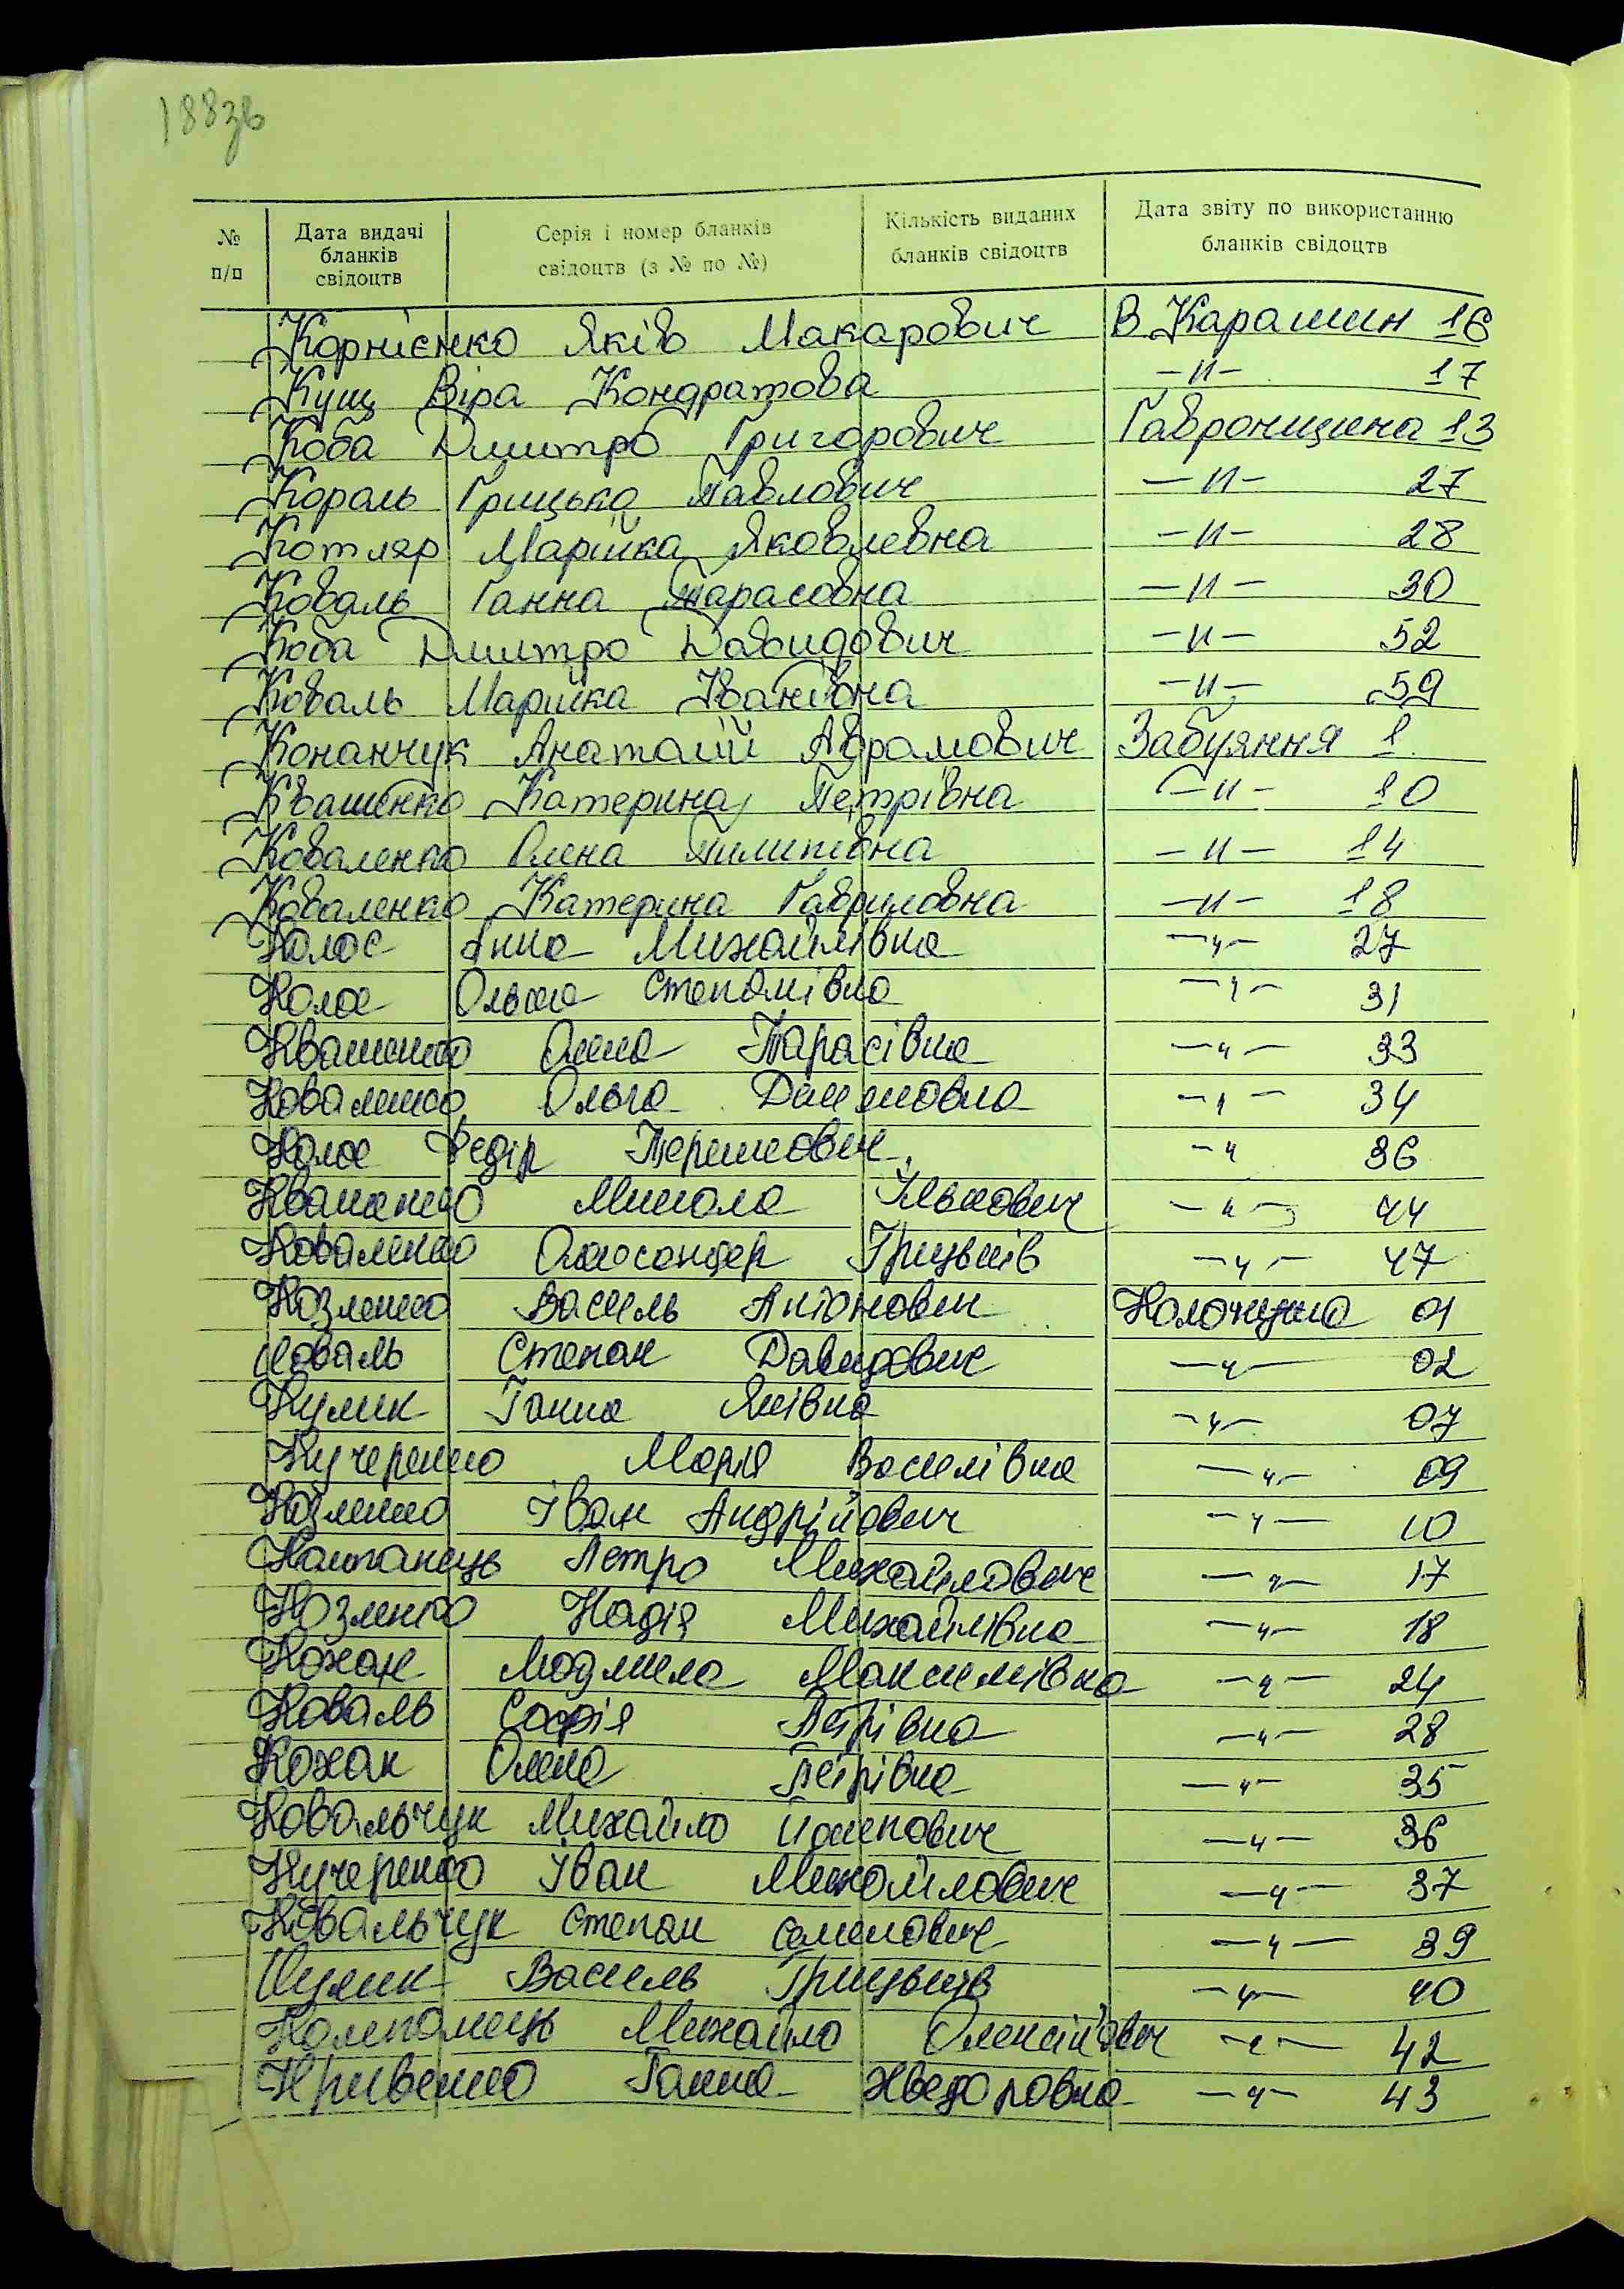 188зв
№ п/п Дата видачі бланків свідоцтв Серія і номер бланків свідоцтв (з № по №) Кількість виданих бланків свідоцтв Дата звіту по використанню бланків свідоцтв
Корнієнко Яків Макарович В. Карашин 16
Кущ Віра Кондратова —и— 17
Коба Дмитро Григорович Гавронщина 13
Король Грицько Павлович —и— 27
Котляр Марійка Яковлевна —и— 28
Коваль Ганна Тарасовна —и— 30
Коба Дмитро Давидович —и— 52
Коваль Марійка Іванівна —и— 59
Конанчук Анатолій Абрамович Забуяння 1
Квашенко Катерина Петрівна —и— 10
Коваленко Олена Пилипівна —и— 14
Коваленко Катерина Гавриловна —и— 18
Колос Анна Михайлівна —и— 27
Колос Ольга Степанівна —и— 31
Квашенко Олена Тарасівна —и— 33
Коваленко Ольга —и— 34
Колос Федір —и 36
Квашенко Микола Ількович —и— 44
Коваленко Олександер Грицьків —и— 47
Козленко Василь Антонович 01
Коваль Степан Давидович —и— 02
Кулик Ганна Яківна —и— 07
Кучеренко Марія Василівна —и— 09
Козленко Іван Андрійович —и— 10
Каштанець Петро Михайлович —и— 17
Козленко Надія Михайлівна —и— 18
Кохан Людмила Максимівна —и— 24
Коваль Софія Петрівна —и— 28
Кохан Олена Петрівна —и— 35
Ковальчук Михайло —и— 36
Кучеренко Іван Михайлович —и— 37
Ковальчук Степан Семенович —и— 39
Кулик Василь Грицьків —и— 40
Михайло Олексійович —и— 42
Кривенко Ганна Хведоровна —и— 43